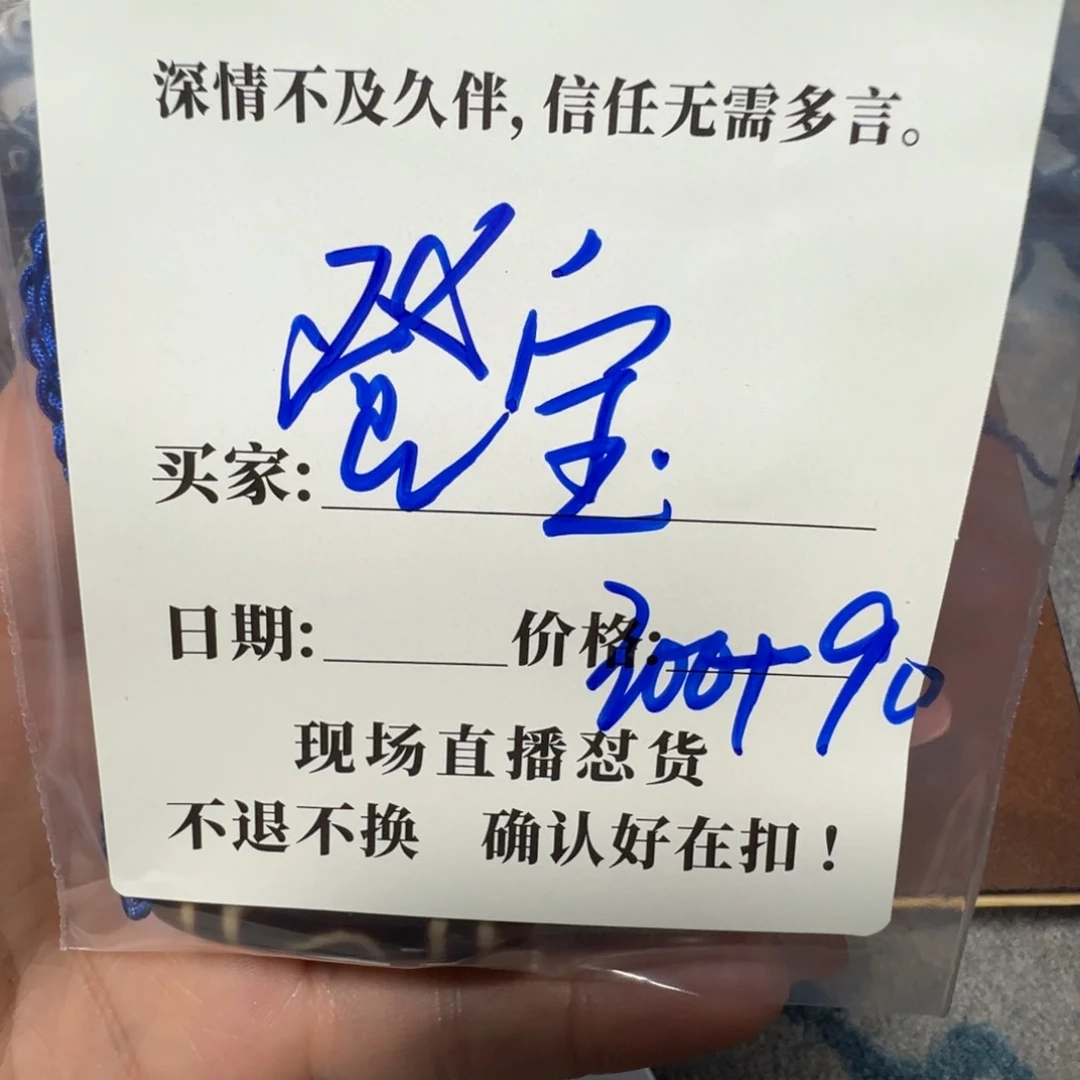 深情不及久伴,信任无需多言。
买家:宝
日期: 价格:300+90
现场直播怼货
不退不换 确认好在扣!